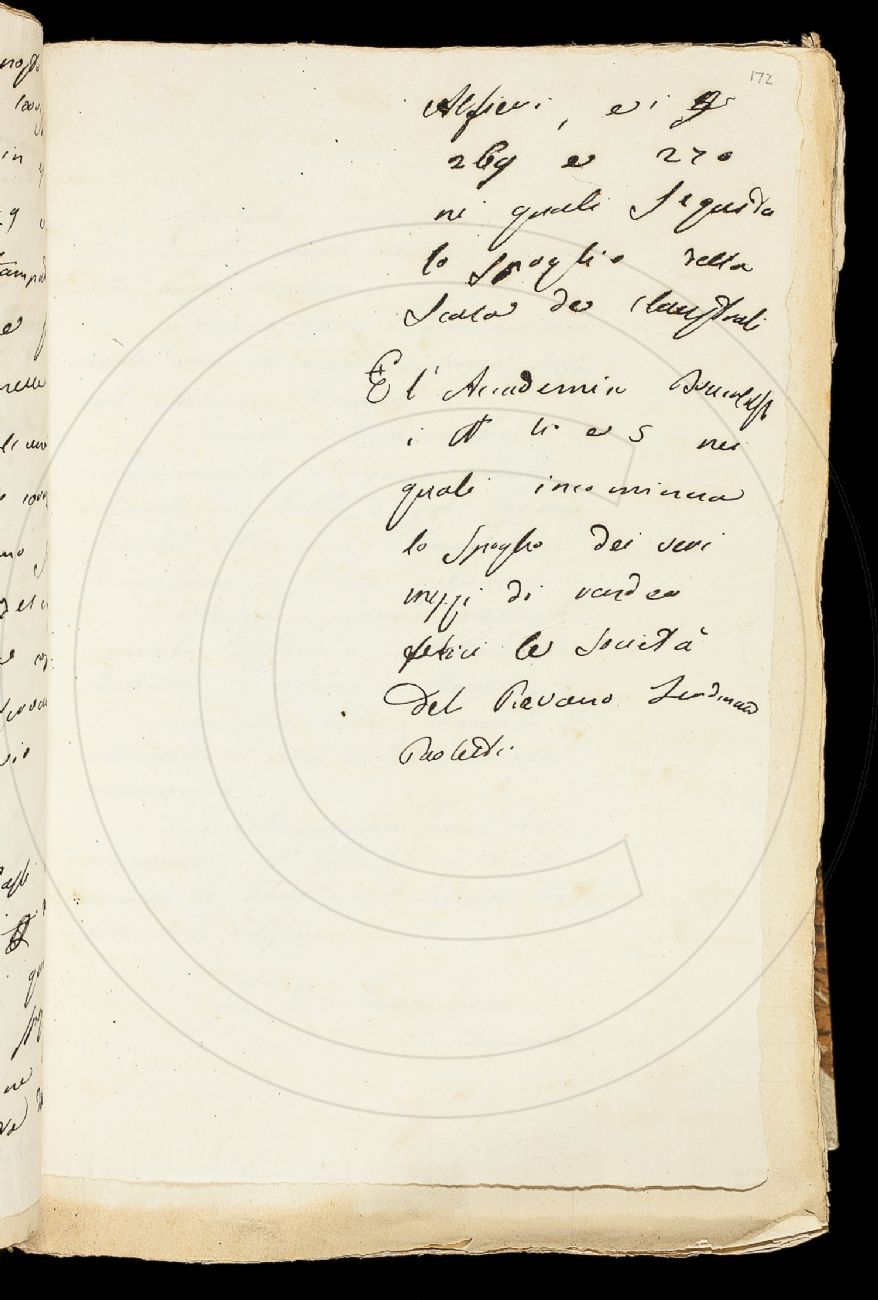 172
Alfieri, e i
269 e 270
nei quali Seguita
lo Spoglio della
Scala de Claustrali
E l'Accademico
i 4 e 5 nei
quali incomincia
lo Spoglio dei veri
mezzi di render
felici le Società
del Pievano Ferdinando
Paoletti